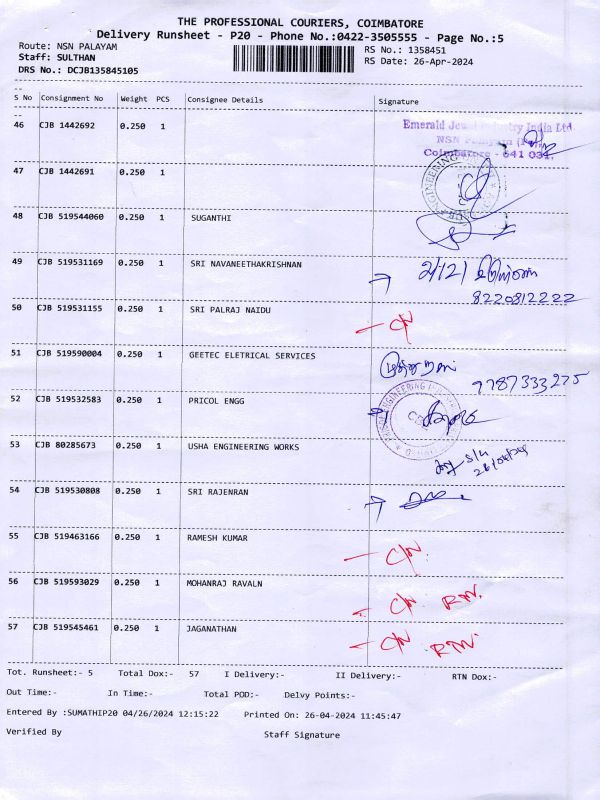 THE PROFESSIONAL COURIERS, COIMBATORE
Delivery Runsheet - P20 - Phone No.:0422-3505555 - Page No.:5
Route: NSN PALAYAM
RS No.: 1358451
Staff: SULTHAN
RS Date: 26-Apr-2024
DRS No.: DCJB135845105
S No Consignment No Weight PCS Consignee Details Signature
46 CJB 1442692 0.250 1
Emerald Jewel Industry India Ltd
Coimbatore - 641 031.
47 CJB 1442691 0.250 1
48 CJB 519544060 0.250 1 SUGANTHI
49 CJB 519531169 0.250 1 SRI NAVANEETHAKRISHNAN 2/121
8220812222
50 CJB 519531155 0.250 1 SRI PALRAJ NAIDU - C/N
51 CJB 519590004 0.250 1 GEETEC ELETRICAL SERVICES
9787333275
52 CJB 519532583 0.250 1 PRICOL ENGG
53 CJB 80285673 0.250 1 USHA ENGINEERING WORKS
54 CJB 519530808 0.250 1 SRI RAJENRAN
55 CJB 519463166 0.250 1 RAMESH KUMAR - C/N
56 CJB 519593029 0.250 1 MOHANRAJ RAVALN - C/N RTN.
57 CJB 519545461 0.250 1 JAGANATHAN - C/N RTN.
Tot. Runsheet:- 5 Total Dox:- 57 I Delivery:- II Delivery:- RTN Dox:-
Out Time:- In Time:- Total POD:- Delvy Points:-
Entered By :SUMATHIP20 04/26/2024 12:15:22 Printed On: 26-04-2024 11:45:47
Verified By Staff Signature